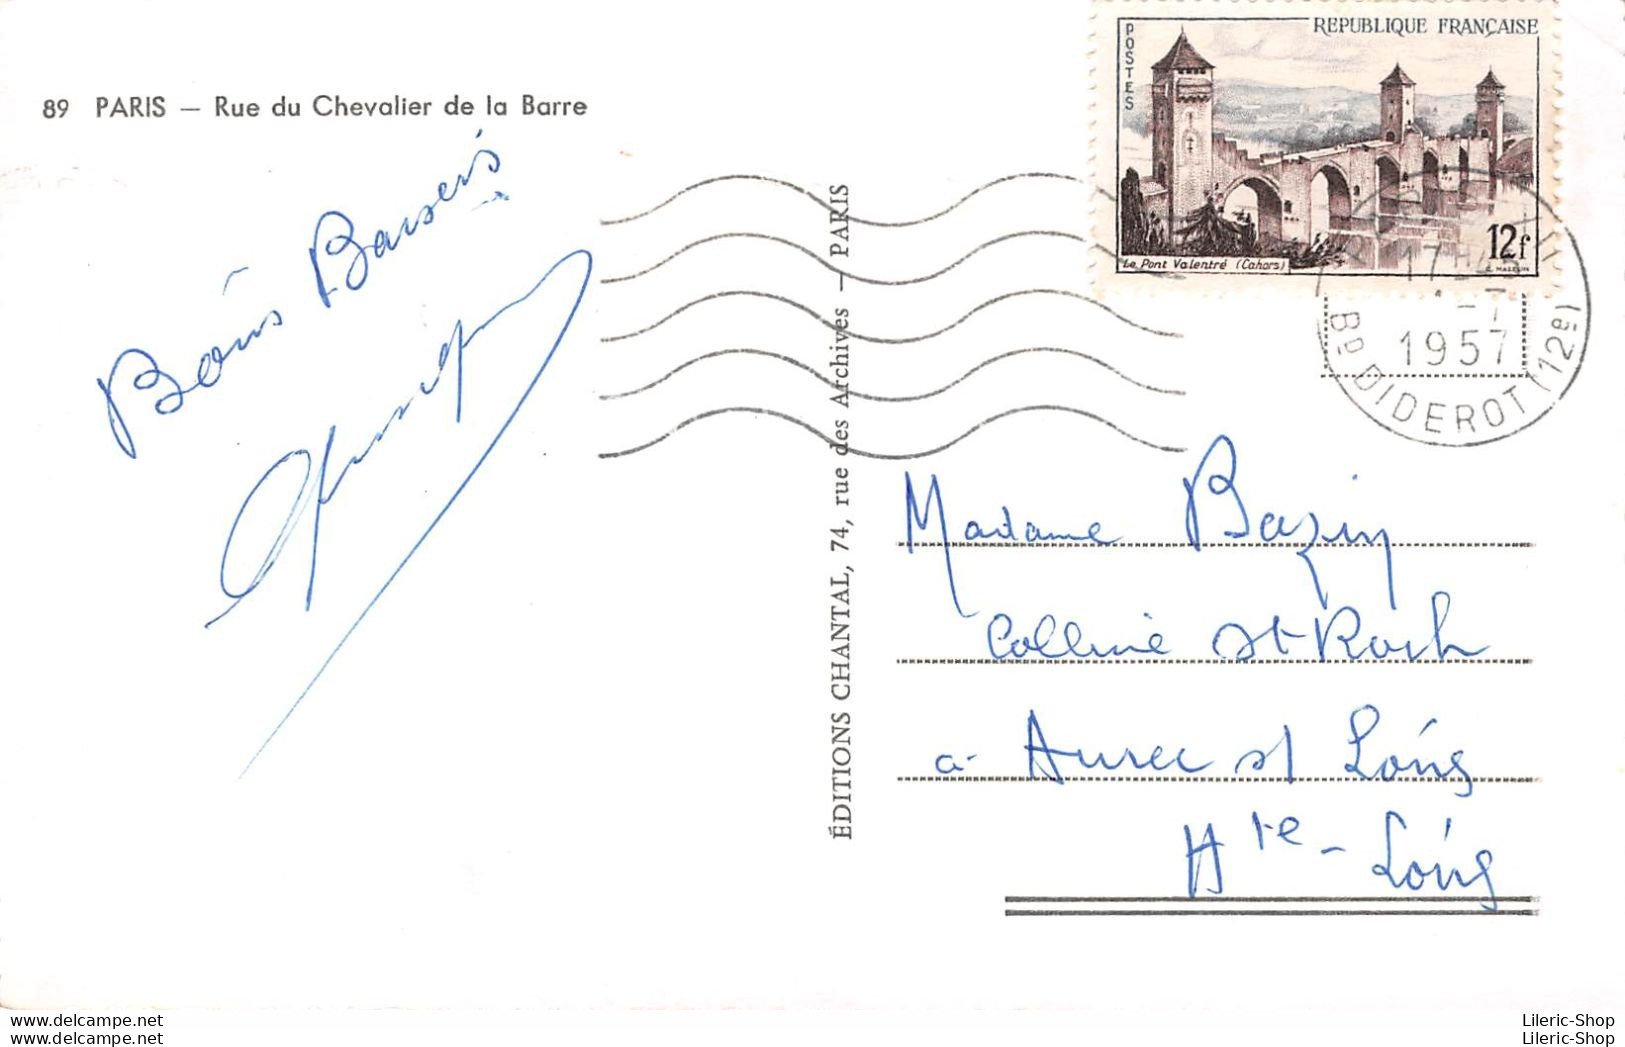 POSTES
REPUBLIQUE FRANÇAISE
12f
Le Pont Valentré (Cahors)
89 PARIS — Rue du Chevalier de la Barre
Bons Baisers
ÉDITIONS CHANTAL, 74, rue des Archives — PARIS
1957
Bᴰ DIDEROT (12ᵉ)
Madame Bazin
Colline St-Roch
a- Aurec s/ Loire
Hte-Loire
www.delcampe.net
www.delcampe.net
Lileric-Shop
Lileric-Shop